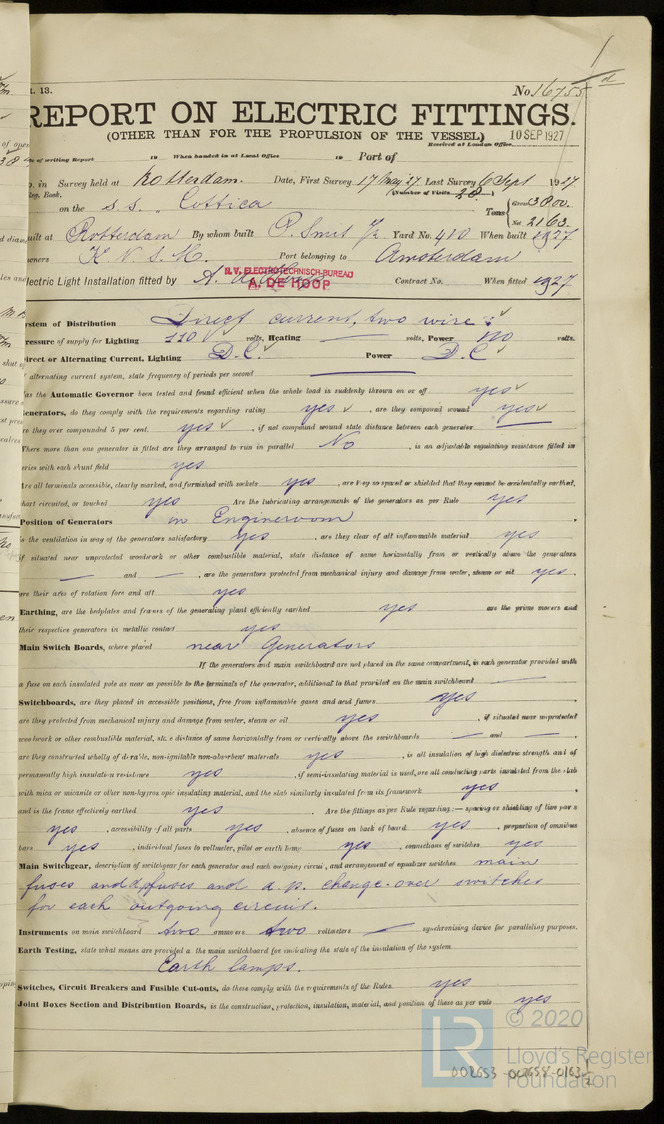 t. 13.
No. 16755
REPORT ON ELECTRIC FITTINGS.
(OTHER THAN FOR THE PROPULSION OF THE VESSEL)
10 SEP 1927
Received at London Office
of writing Report 19 When handed in at Local Office 19 Port of
in Survey held at Rotterdam. Date, First Survey 17 May 27. Last Survey 6 Sept 1927
Book. (Number of Visits 28)
on the s.s. "Cottica Tons Gross 3800. Net 2163.
uilt at Rotterdam By whom built P. Smit Jr Yard No. 410 When built 1927
wners K N S M. Port belonging to Amsterdam
lectric Light Installation fitted by A. de Hoop Contract No. When fitted 1927
N.V. ELECTROTECHNISCH-BUREAU
A. DE HOOP
ystem of Distribution Direct current, two wire
ressure of supply for Lighting 110 volts, Heating — volts, Power 110 volts.
irect or Alternating Current, Lighting D.C. Power D.C
alternating current system, state frequency of periods per second —
as the Automatic Governor been tested and found efficient when the whole load is suddenly thrown on or off yes
enerators, do they comply with the requirements regarding rating yes, are they compound wound yes
re they over compounded 5 per cent. yes, if not compound wound state distance between each generator —
here more than one generator is fitted are they arranged to run in parallel No, is an adjustable regulating resistance fitted in
ries with each shunt field yes
re all terminals accessible, clearly marked, and furnished with sockets yes, are they so spaced or shielded that they cannot be accidentally earthed,
hort circuited, or touched yes Are the lubricating arrangements of the generators as per Rule yes
Position of Generators in Engineroom
is the ventilation in way of the generators satisfactory yes, are they clear of all inflammable material yes
if situated near unprotected woodwork or other combustible material, state distance of same horizontally from or vertically above the generators
— and —, are the generators protected from mechanical injury and damage from water, steam or oil yes,
are their axes of rotation fore and aft yes
Earthing, are the bedplates and frames of the generating plant efficiently earthed yes are the prime movers and
their respective generators in metallic contact yes
Main Switch Boards, where placed near Generators
If the generators and main switchboard are not placed in the same compartment, is each generator provided with
a fuse on each insulated pole as near as possible to the terminals of the generator, additional to that provided on the main switchboard —
Switchboards, are they placed in accessible positions, free from inflammable gases and acid fumes yes
are they protected from mechanical injury and damage from water, steam or oil yes, if situated near unprotected
woodwork or other combustible material, state distance of same horizontally from or vertically above the switchboards — and —
are they constructed wholly of durable, non-ignitable non-absorbent materials yes, is all insulation of high dielectric strength and of
permanently high insulation resistance yes, if semi-insulating material is used, are all conducting parts insulated from the slab
with mica or micanite or other non-hygroscopic insulating material, and the slab similarly insulated from its framework yes
and is the frame effectively earthed yes. Are the fittings as per Rule regarding:— spacing or shielding of live parts
yes, accessibility of all parts yes, absence of fuses on back of board yes, proportion of omnibus
bars yes, individual fuses to voltmeter, pilot or earth lamp yes, connections of switches yes
Main Switchgear, description of switchgear for each generator and each outgoing circuit, and arrangement of equalizer switches main
fuses and d.p. fuses and d.p. change-over switches
for each outgoing circuit.
Instruments on main switchboard two ammeters two voltmeters — synchronizing device for paralleling purposes.
Earth Testing, state what means are provided at the main switchboard for indicating the state of the insulation of the system
Earth lamps.
Switches, Circuit Breakers and Fusible Cut-outs, do these comply with the requirements of the Rules yes
Joint Boxes Section and Distribution Boards, is the construction, protection, insulation, material, and position of these as per rule yes
© 2020
LR
Lloyd's Register
Foundation
002653-002658-0163 1/2